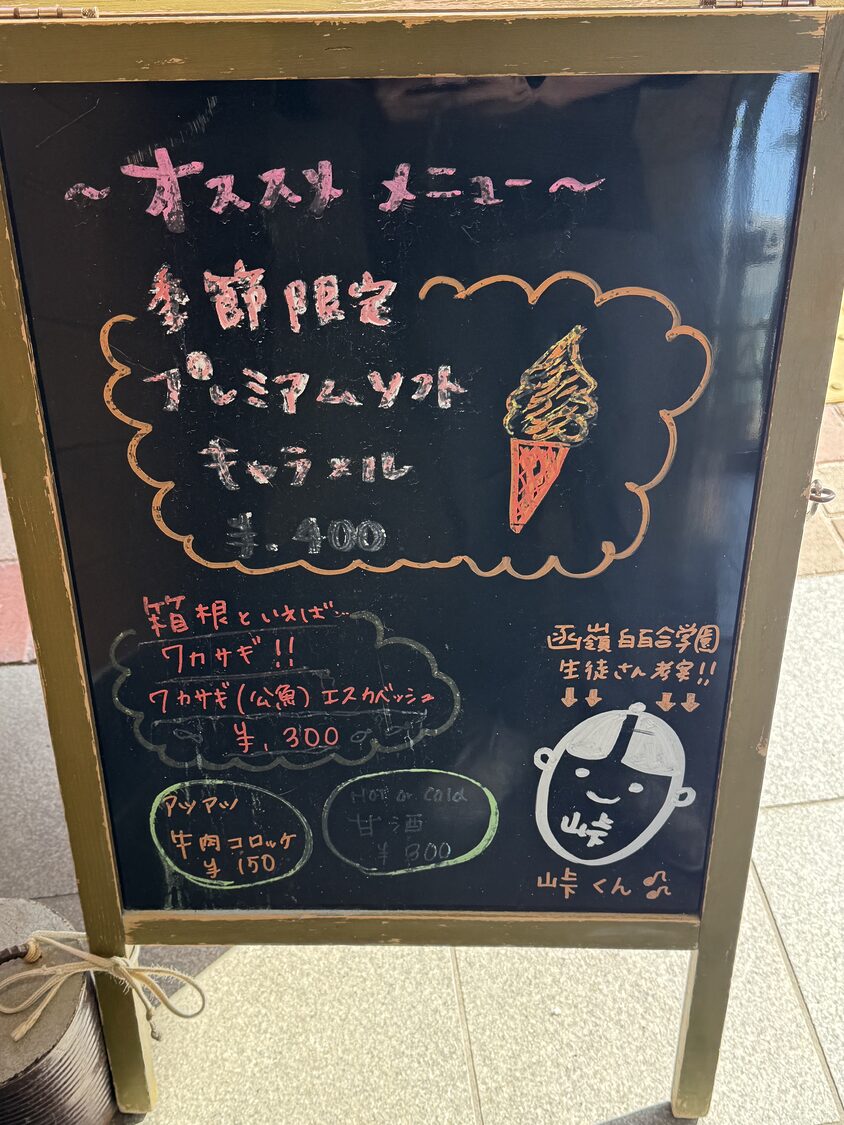 ～オススメ メニュー～
季節限定
プレミアムソフト
キャラメル
¥.400
箱根といえば…
ワカサギ!!
ワカサギ(公魚)エスカベッシュ
¥.300
アツアツ
牛肉コロッケ
¥150
HOT or Cold
甘酒
¥300
函嶺白百合学園
生徒さん考案!!
↓↓ ↓↓
峠
峠くん♫